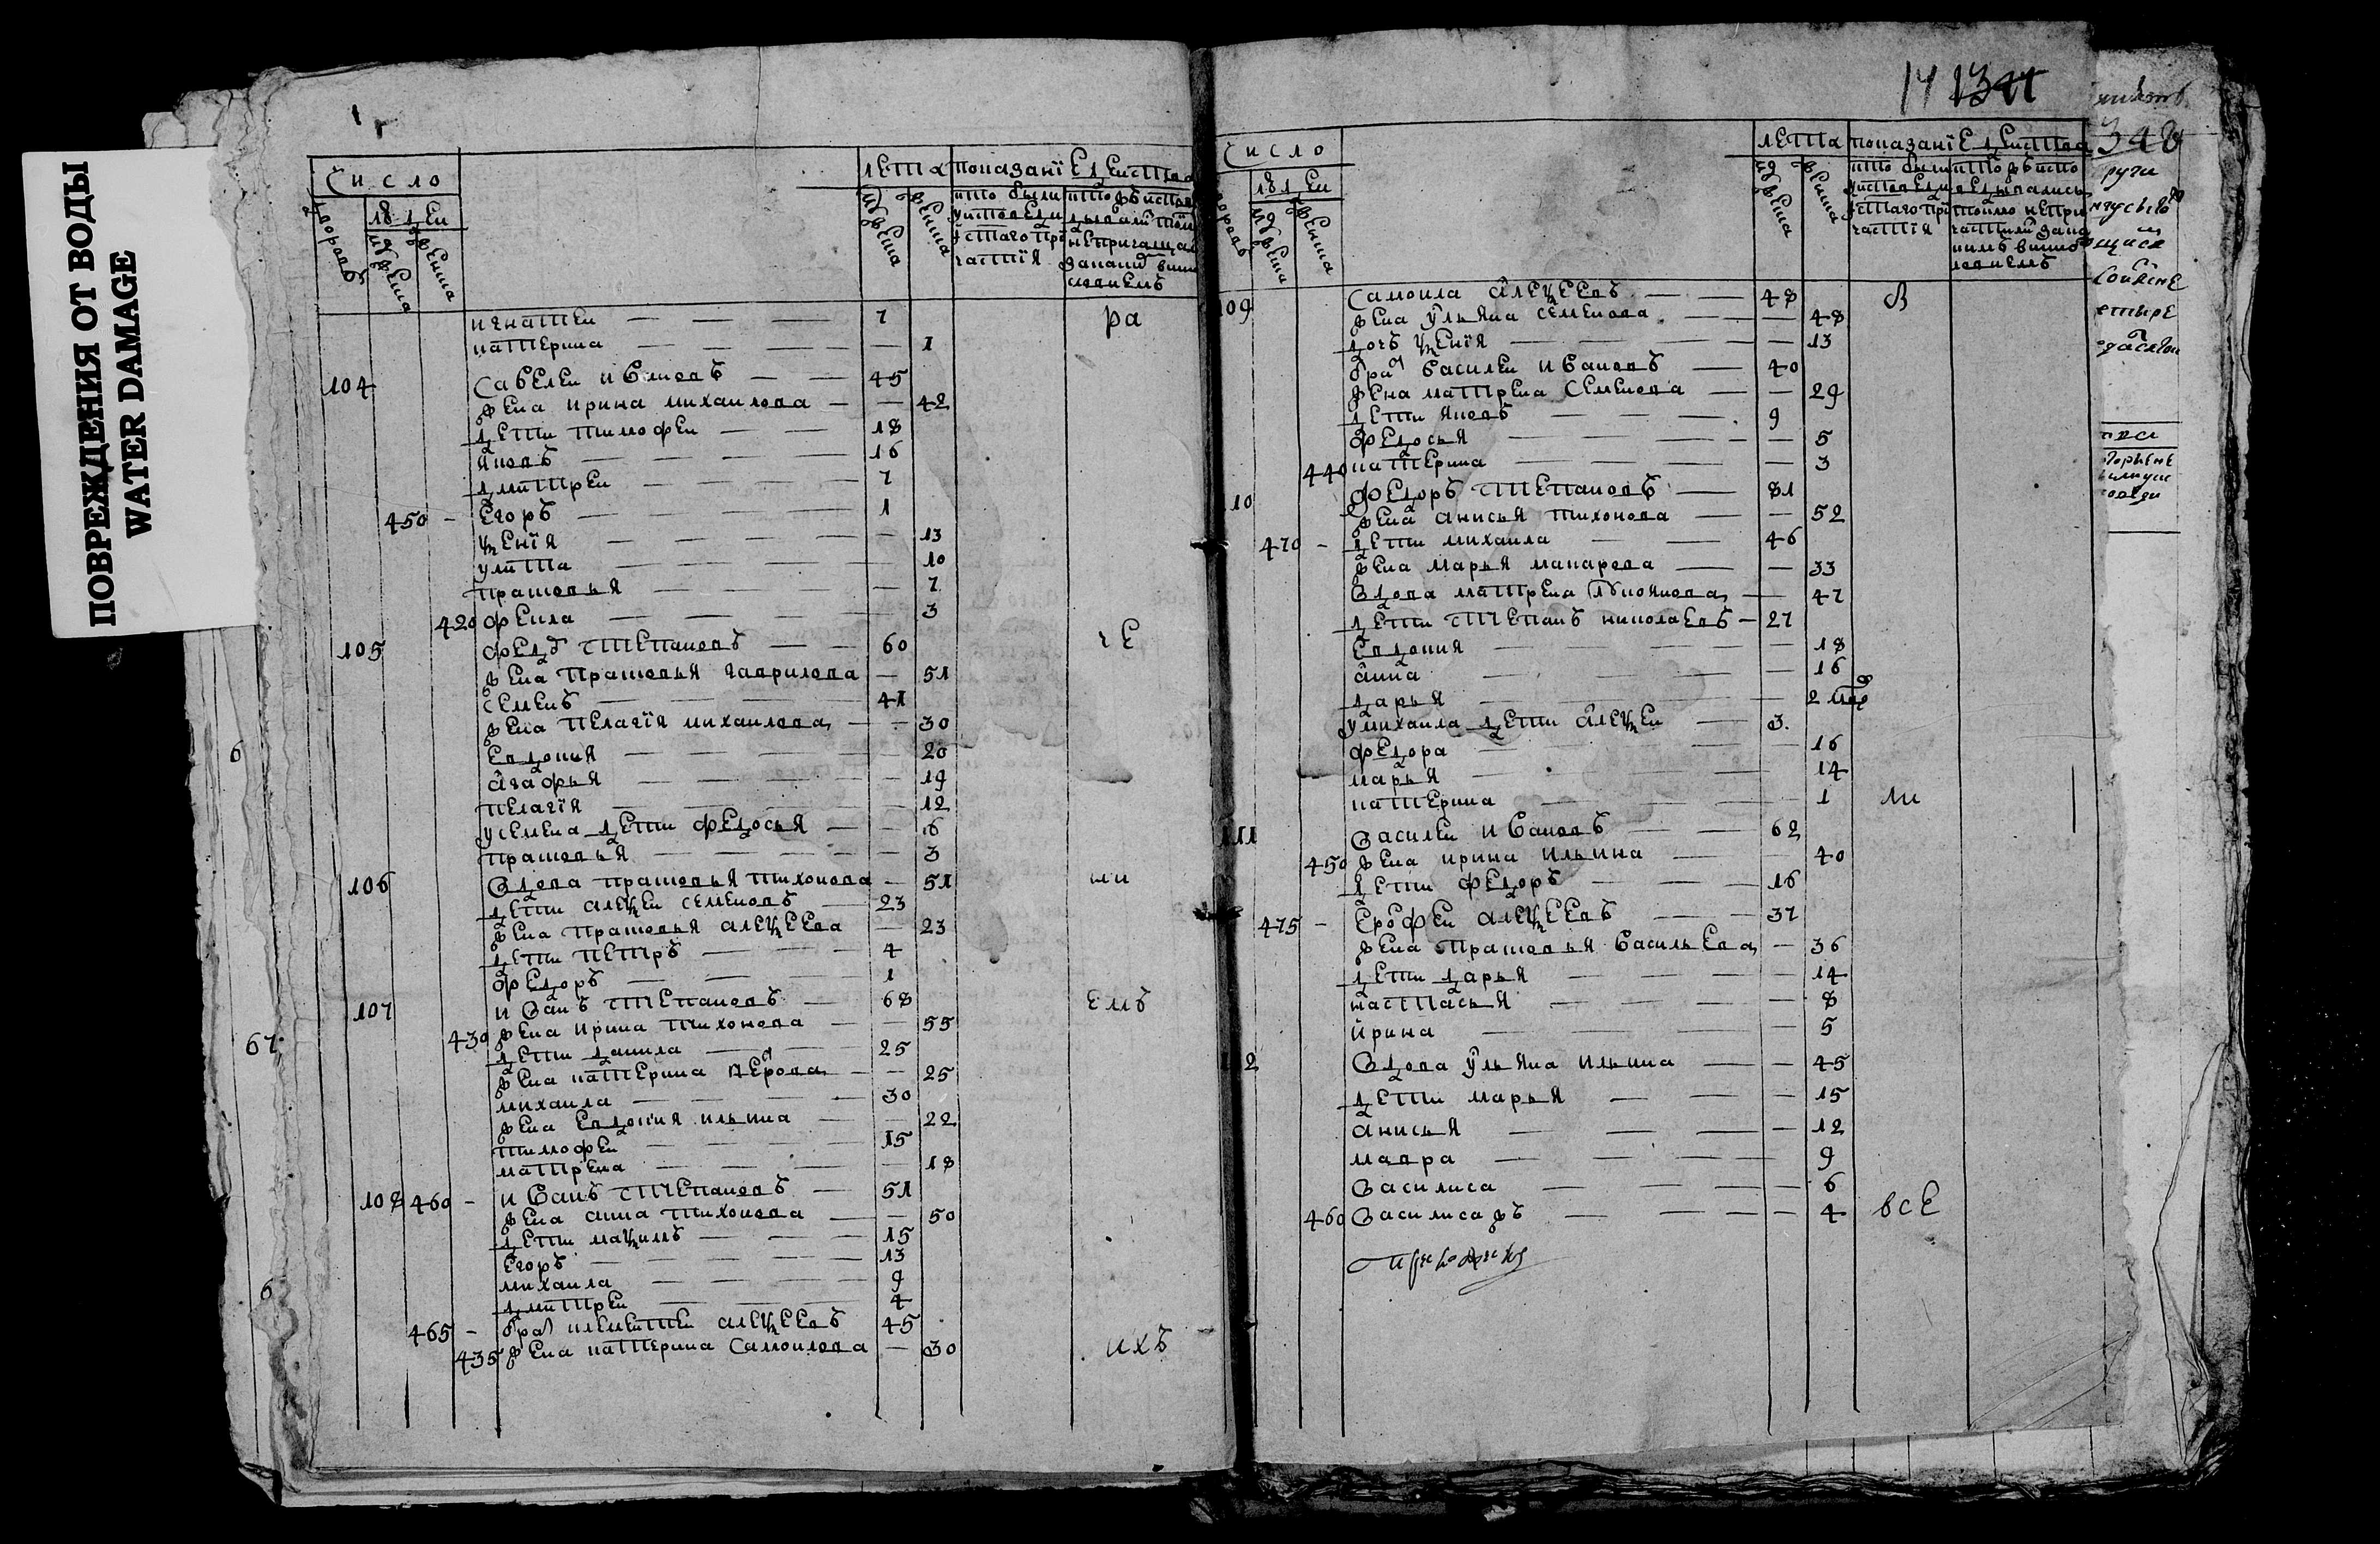 ПОВРЕЖДЕНИЯ ОТ ВОДЫ
WATER DAMAGE
число
людей
дворовъ
мужеска
женска
лета
показанїе действа
мужеска
женска
кто были
у исповеди
и стаго при
частїя
игнатеи — 7 ра
катерина — 1
104 савелеи ивановъ — 45
жена ирина михаилова — 42
дети тимофеи — 18
яковъ — 16
дмитреи — 7
450 - егоръ — 1
ѯенїя — 13
улита — 10
прасковья — 7
420 фекла — 3
105 федъ степановъ — 60 че
жена прасковья гаврилова — 51
семенъ — 41
жена пелагїя михаилова — 30
евдокия — 20
агафья — 19
пелагїя — 12
у семена дети федосья — 6
прасковья — 3
106 вдова прасковья тихонова — 51
дети алеѯеи семеновъ — 23
жена прасковья алеѯеева — 23
дети петръ — 4
федоръ — 1
107 иванъ степановъ — 68 емъ
430 жена ирина тихонова — 55
дети данила — 25
жена катерина — 25
михаила — 30
жена евдокия ильина — 22
тимофеи — 15
матрена — 18
108 460 - иванъ степановъ — 51
жена анна тихонова — 50
дети маѯимъ — 15
егоръ — 13
михаила — 9
дмитреи — 4
465 - бра клементеи алеѯеевъ 45
435 жена катерина самоилова — 30 ихъ
6
67
6
14 1344
число
людей
дворовъ
мужеска
женска
лета
показанїе действа
мужеска
женска
кто были
у исповеди
и стаго при
частїя
109 самоила алеѯеевъ — 48 в
жена ульяна семенова — 48
дочь ѯенїя — 13
бра василеи ивановъ — 40
жена матрена семенова — 29
дети яковъ — 9
федосья — 5
440 катерина — 3
10 федоръ степановъ — 81
жена анисья тихонова — 52
470 - дети михаила — 46
жена марья макарова — 33
вдова матрена — 47
дети степанъ николаевъ — 27
евдокия — 18
анна — 16
дарья — 2
у михаила дети алеѯеи — 3
федора — 16
марья — 14
катерина — 1 ли
111 василеи ивановъ — 62
450 жена ирина ильина — 40
дети федоръ — 16
475 - ерофеи алеѯеевъ — 37
жена прасковья васильева — 36
дети дарья — 14
настасья — 8
ирина — 5
2 вдова ульяна ильина — 45
дети марья — 15
анисья — 12
мавра — 9
василиса — 6
460 василиса жъ — 4 все
348
руги